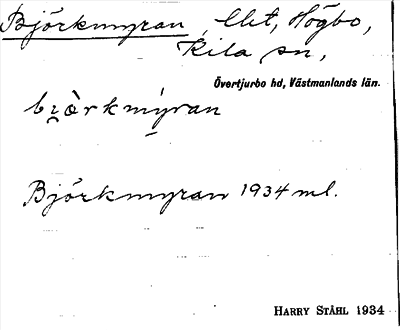 Björkmyran, Ulet, Högbo,
Kila sn,
Övertjurbo hd, Västmanlands län.
bi̯ò̀rkmýran
Björkmyran 1934 ml.
HARRY STÅHL 1934